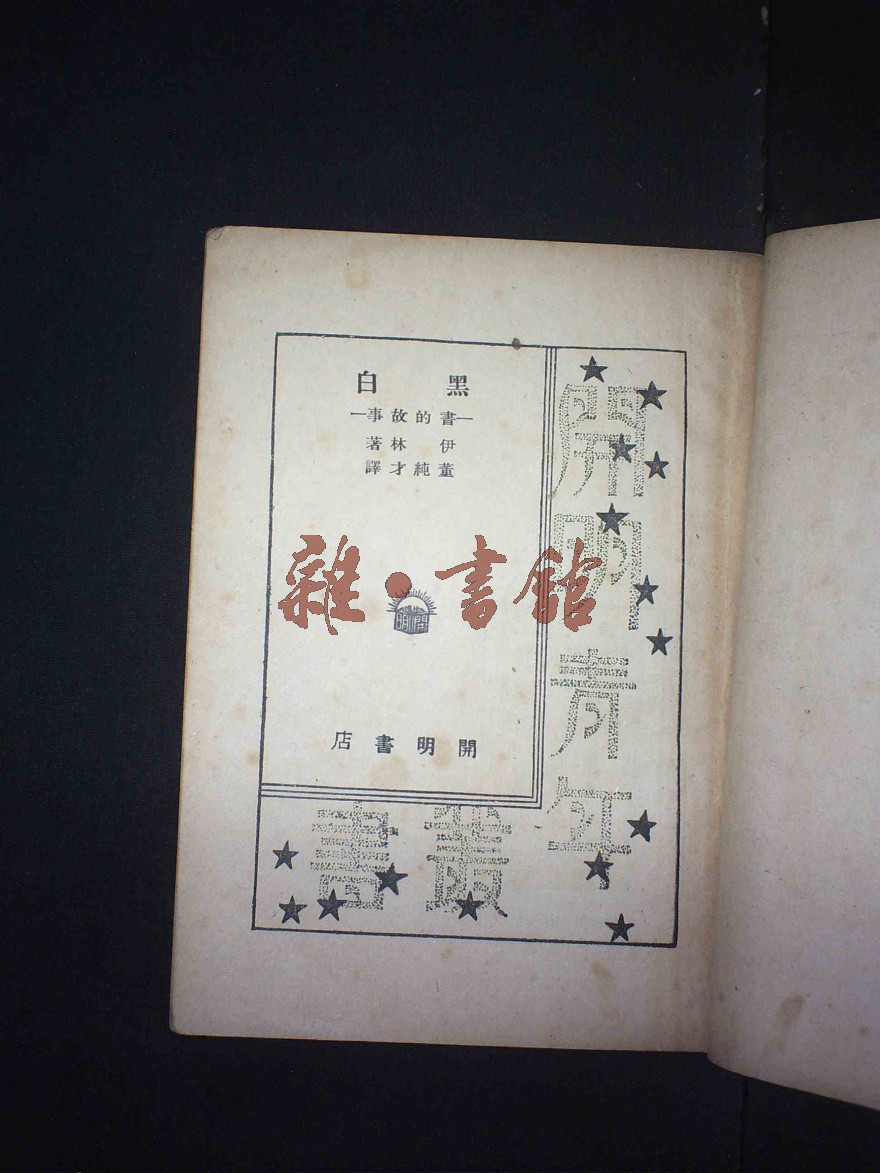 黑白
—書的故事—
伊林著
董純才譯
開明
開明書店
開明青年
叢書
雜·書館